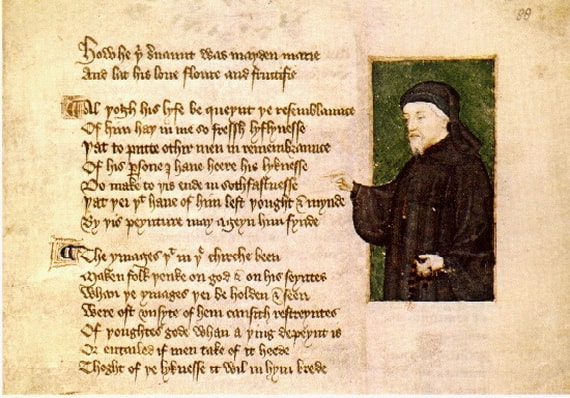 88
How he þⁱ seruaunt was mayden marie
And lat his loue floure and fructifie
Al þogh his lyfe be queynt þe resemblaunce
Of him haþ in me so fressh lyflynesse
Þat to putte othir men in remembraunce
Of his ꝑsone I haue heere his lyknesse
Do make to þis ende in sothfastnesse
Þat þei þᵗ haue of him left þought & mynde
By þis peynture may ageyn him fynde
The ymages þᵗ in þᵉ chirche been
Maken folk þenke on god & on his seyntes
Whan þe ymages þei be holden & seen
Were oft vnsyte of hem causith restreyntes
Of þoughtes gode whan a þing depeynt is
Or entailed if men take of it heede
Thoght of þe lyknesse it wil in hym brede